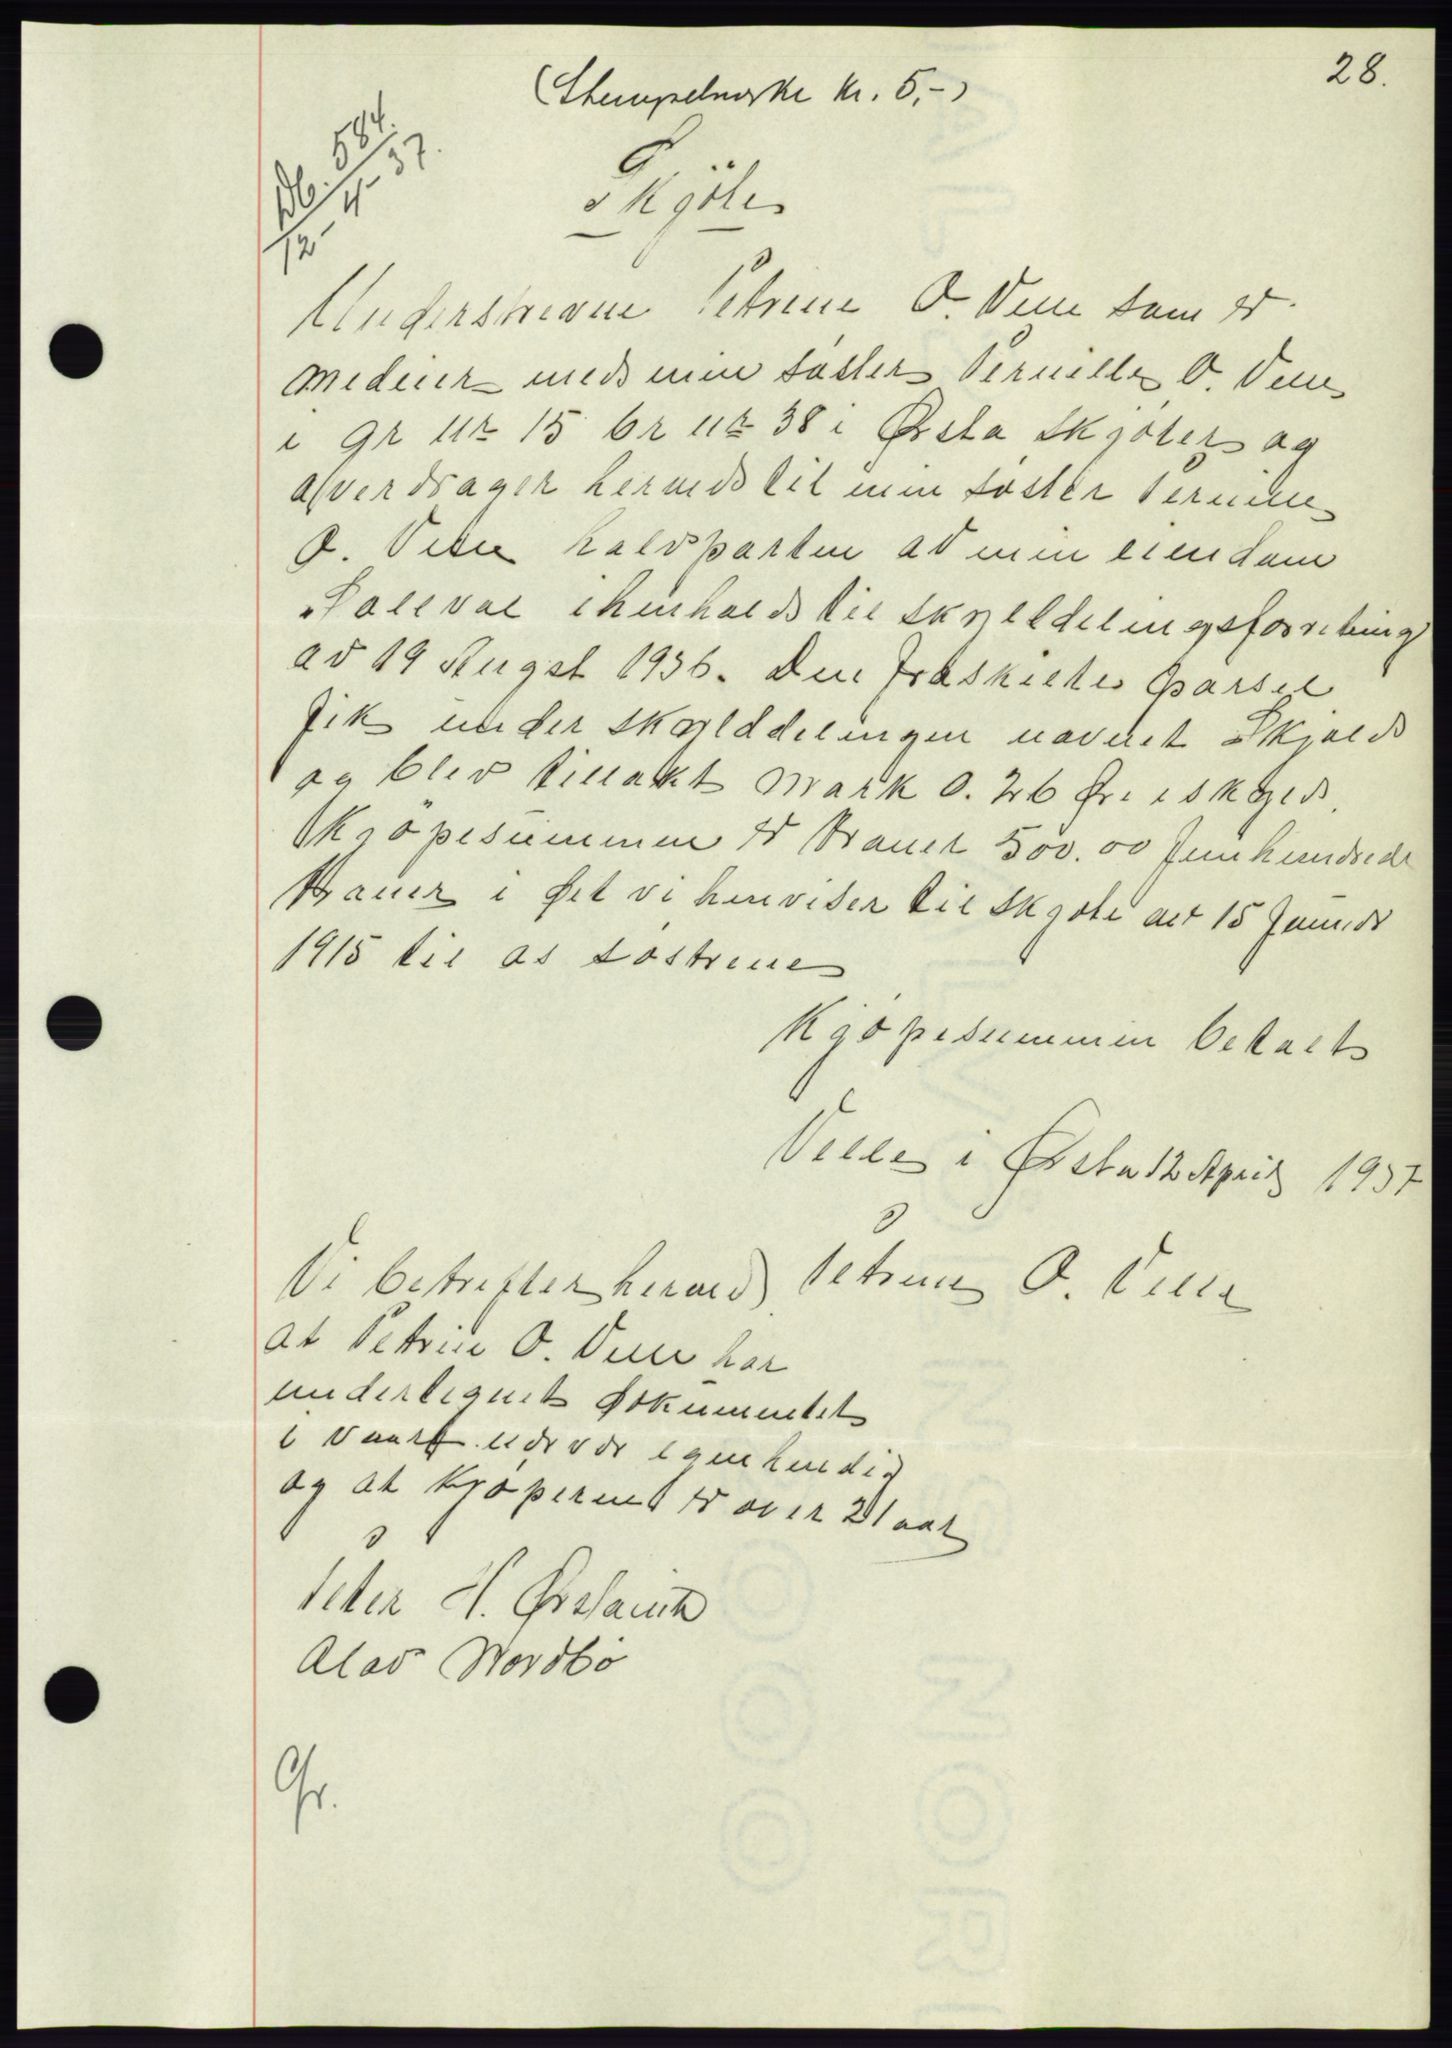 28.
(Stempelmerke kr. 5,-)
Db. 584.
12-4-37.
Skjöte
Underskrevne Petrine O. Velle som er
medeier med min søster Pernille O. Velle
i gr nr 15 br nr 38 i Ørsta skjøter og
overdrager herved til min søster Pernille
O. Velle halvparten av min eiendom
Solevol i henhold til skylddelingsforretning
av 19 Augst 1936. Den fraskielte parsel
fik under skylddelingen navnet Skjold
og blev tillakt Mark 0.26 Øre i skyld.
Kjöpesummen er Kroner 500.00 femhundrede
Kroner i det vi henviser til skjøte av 15 Juni
1915 til os søstrene
Kjöpesummen betalt
Velle i Ørsta 12 April 1937
Petrine O. Velle
Vi betrefter herved
at Petrine O. Velle har
undertegnet dokumentet
i vaart nærvær egenhendig
og at kjöperen er over 21 aar
Peter H. Ørstavik
Olav Nordbø
Gr.